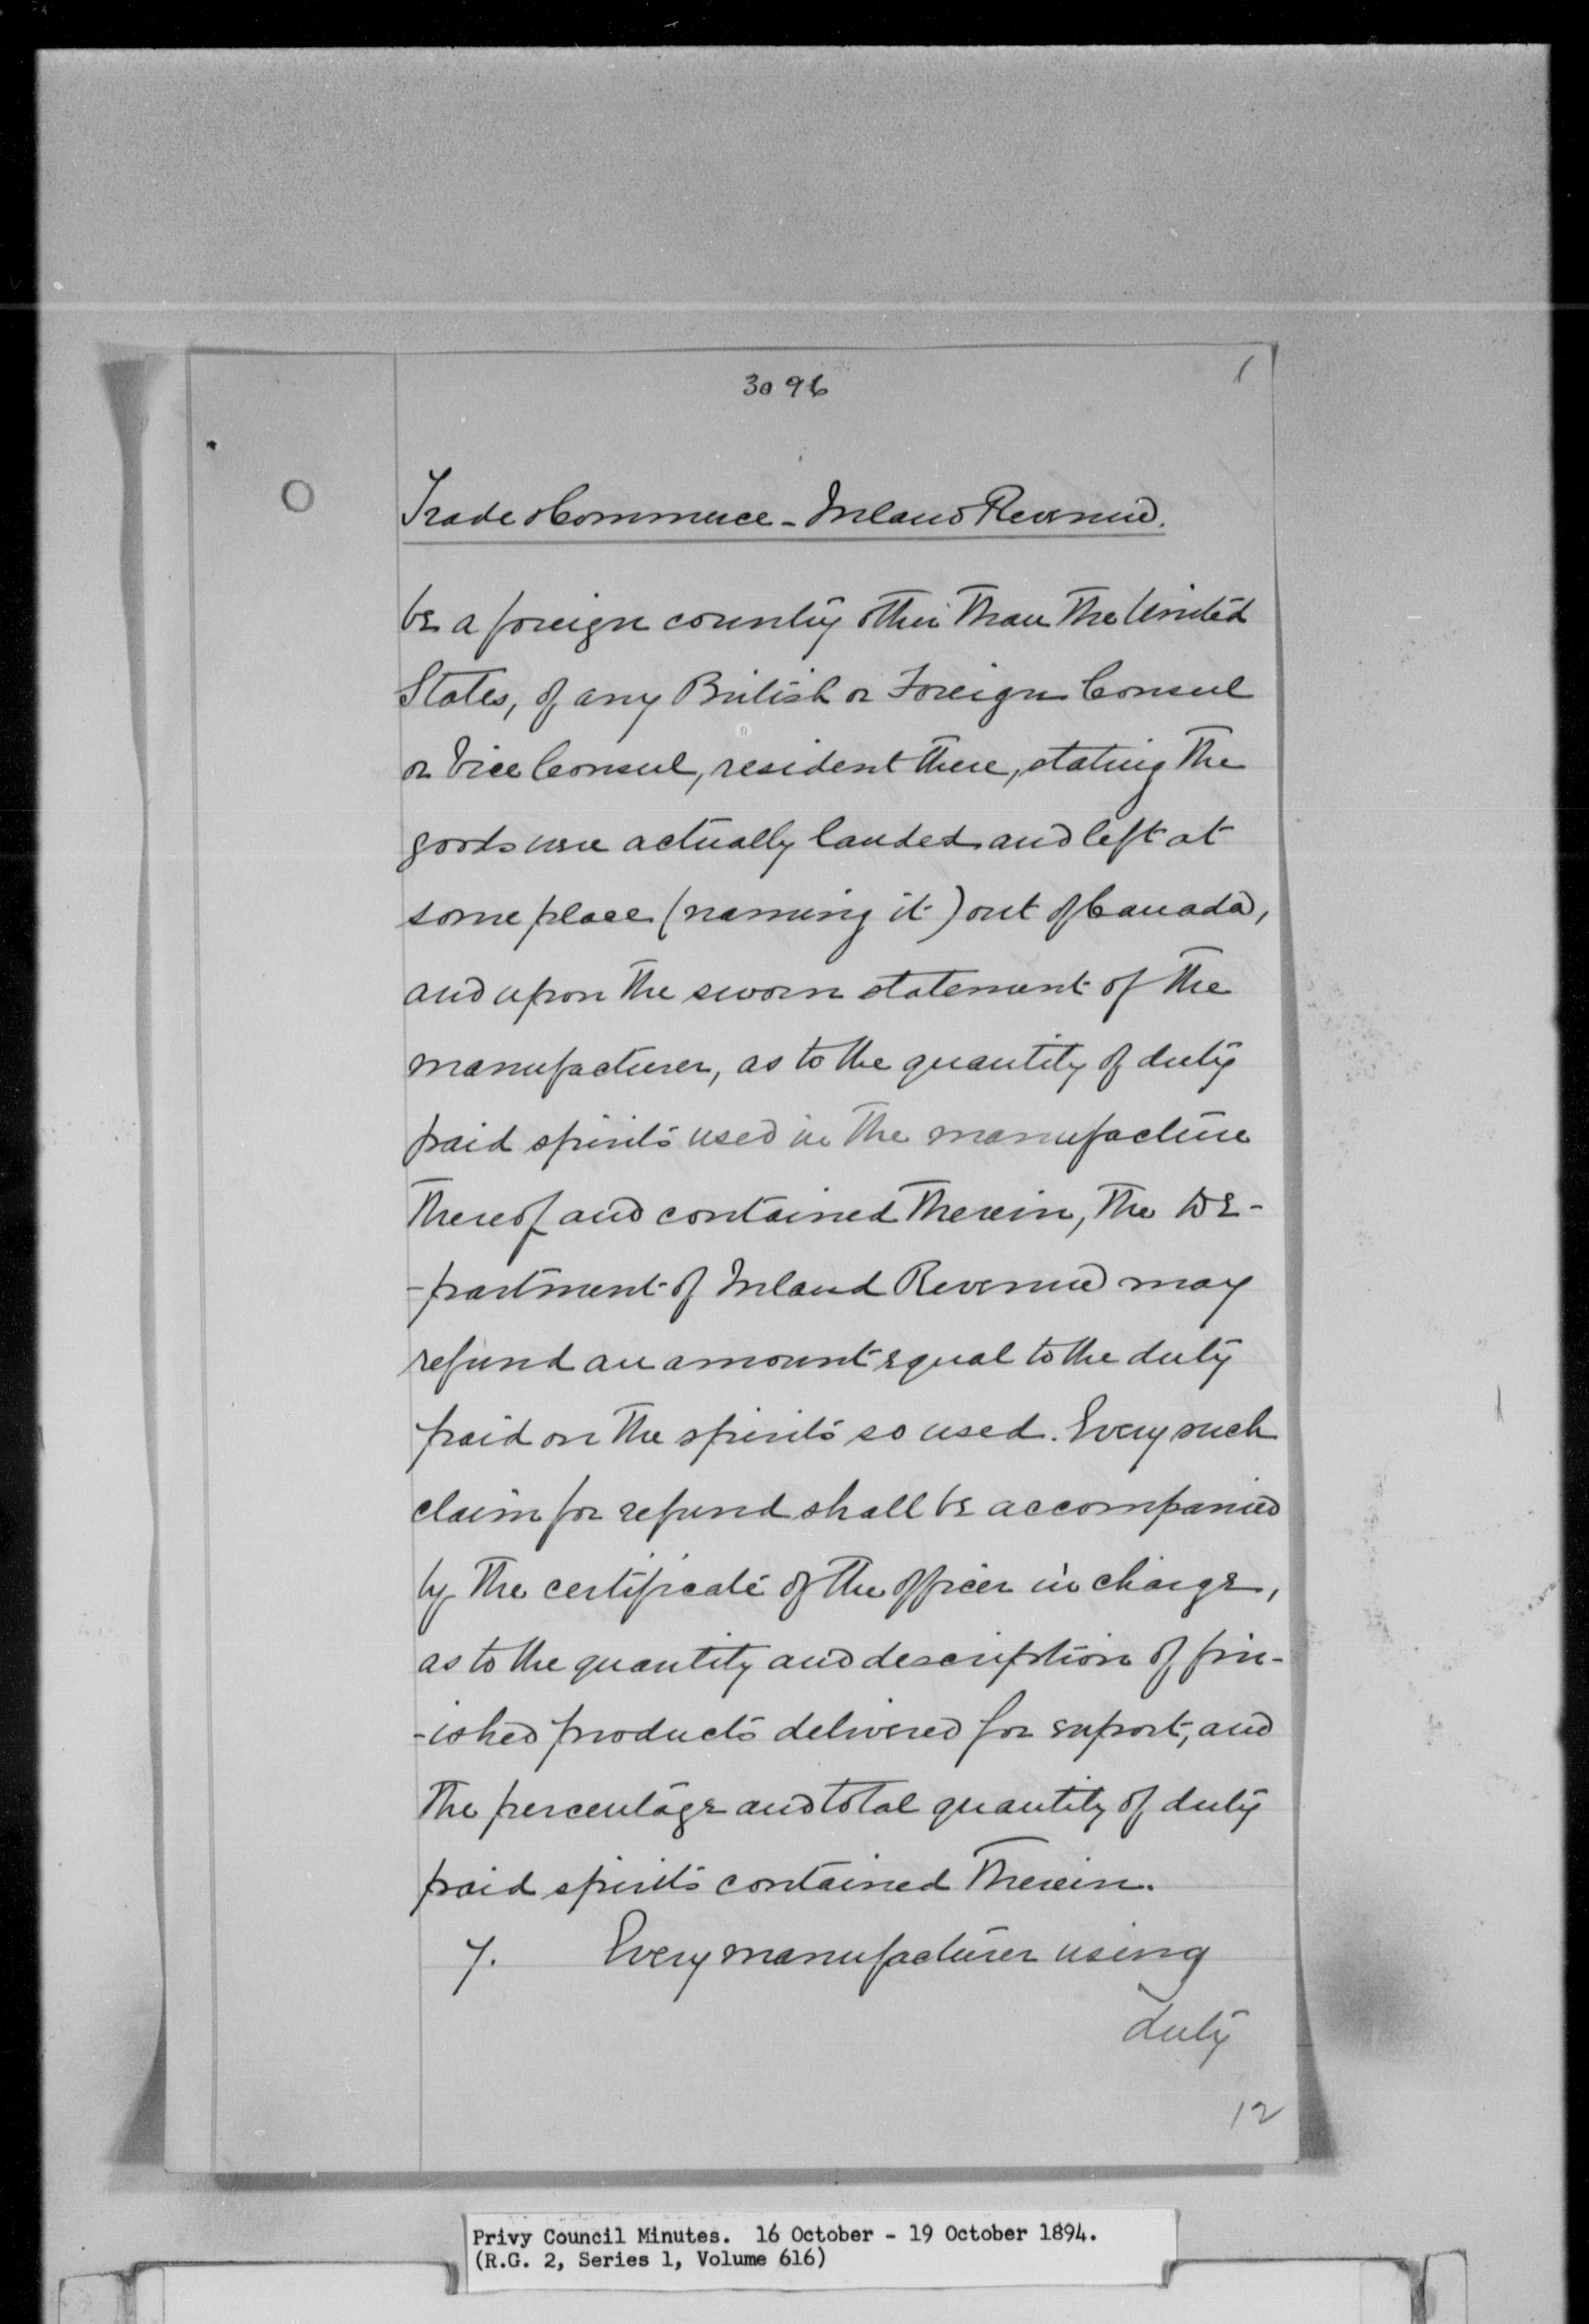 3096
Trade & Commerce - Inland Revenue.
be a foreign country other than the United
States, of any British or Foreign Consul
or Vice Consul, resident there, stating the
goods were actually landed and left at
some place (naming it) out of Canada,
and upon the sworn statement of the
manufacturer, as to the quantity of duty
paid spirits used in the manufacture
thereof and contained therein, the De-
-partment of Inland Revenue may
refund an amount equal to the duty
paid on the spirits so used. Every such
claim for refund shall be accompanied
by the certificate of the officer in charge,
as to the quantity and description of fin-
-ished products delivered for export, and
the percentage and total quantity of duty
paid spirits contained therein.
7. Every manufacturer using
duty
12
Privy Council Minutes. 16 October - 19 October 1894.
(R.G. 2, Series 1, Volume 616)